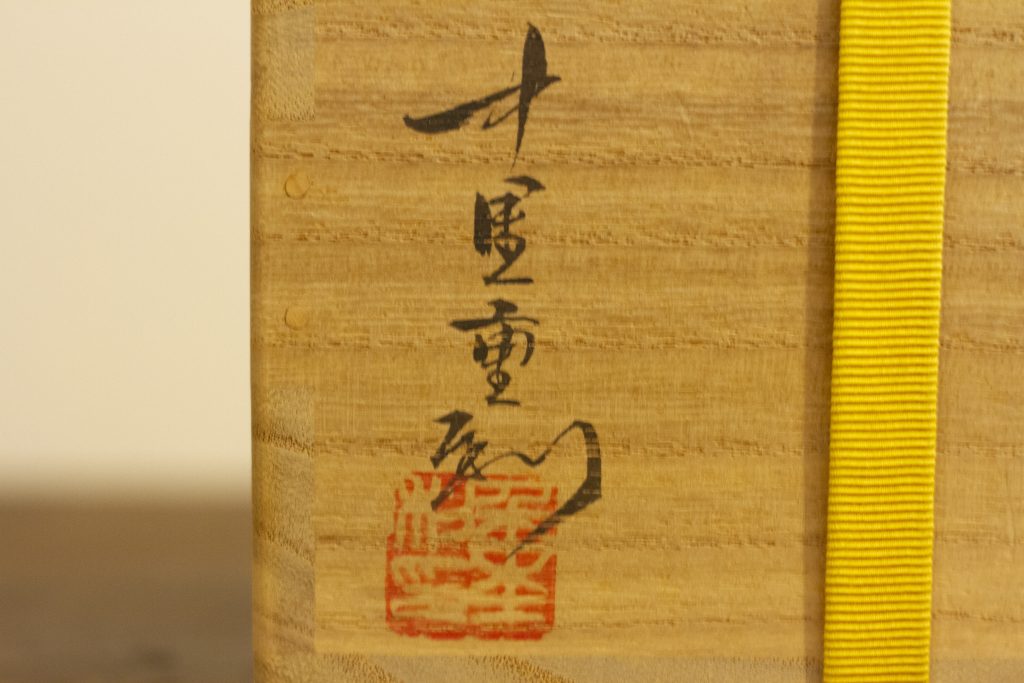 中里重利